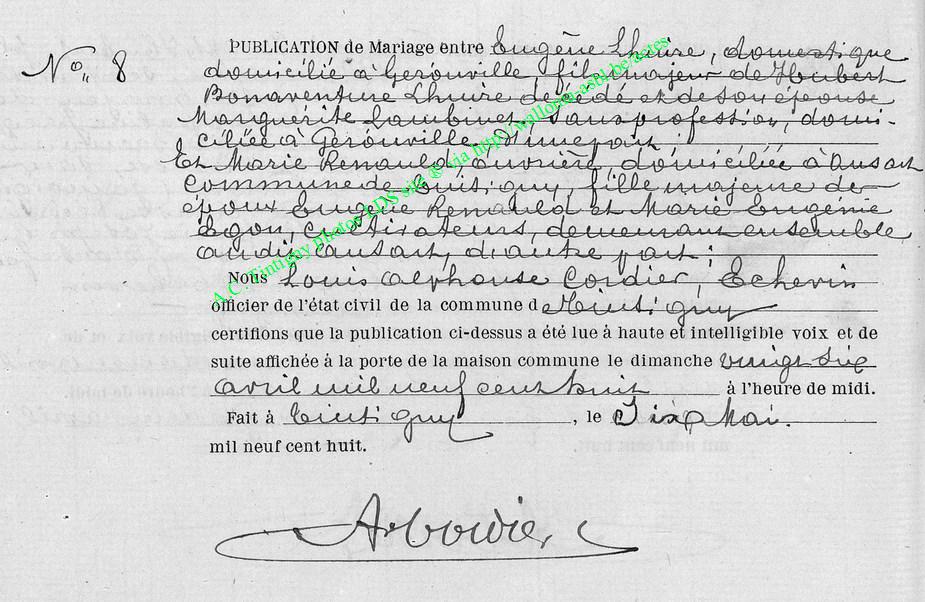 No 8
PUBLICATION de Mariage entre Eugène Lhuire, domestique
domicilié à Gérouville, fils majeur de Hubert
Bonaventure Lhuire décédé et de son épouse
Marguérite Lambinet, sans profession, domi-
ciliée à Gérouville, d'une part;
Et Marie Renauld, ouvrière, domiciliée à Ansart
commune de Tintigny, fille majeure de
époux Eugène Renauld et Marie Eugénie
cultivateurs, demeurant ensemble
au dit Ansart, d'autre part;
Nous Louis Alphonse Cordier, Echevin
officier de l'état civil de la commune d Tintigny
certifions que la publication ci-dessus a été lue à haute et intelligible voix et de
suite affichée à la porte de la maison commune le dimanche vingt six
avril mil neuf cent huit à l'heure de midi.
Fait à Tintigny, le Mai.
mil neuf cent huit.
A.C. Tintigny photos EDS site © via http://wallonia-asbl.be/actes